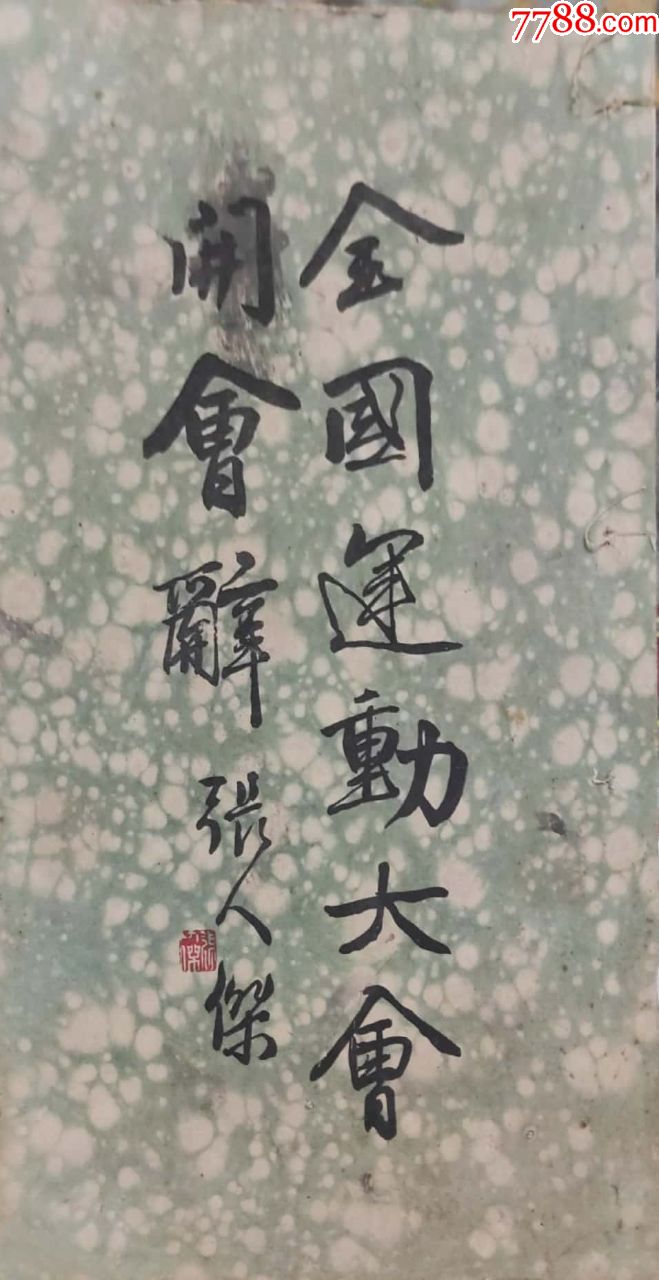 7788.com
全國運動大會
開會辭 張人傑
張人傑